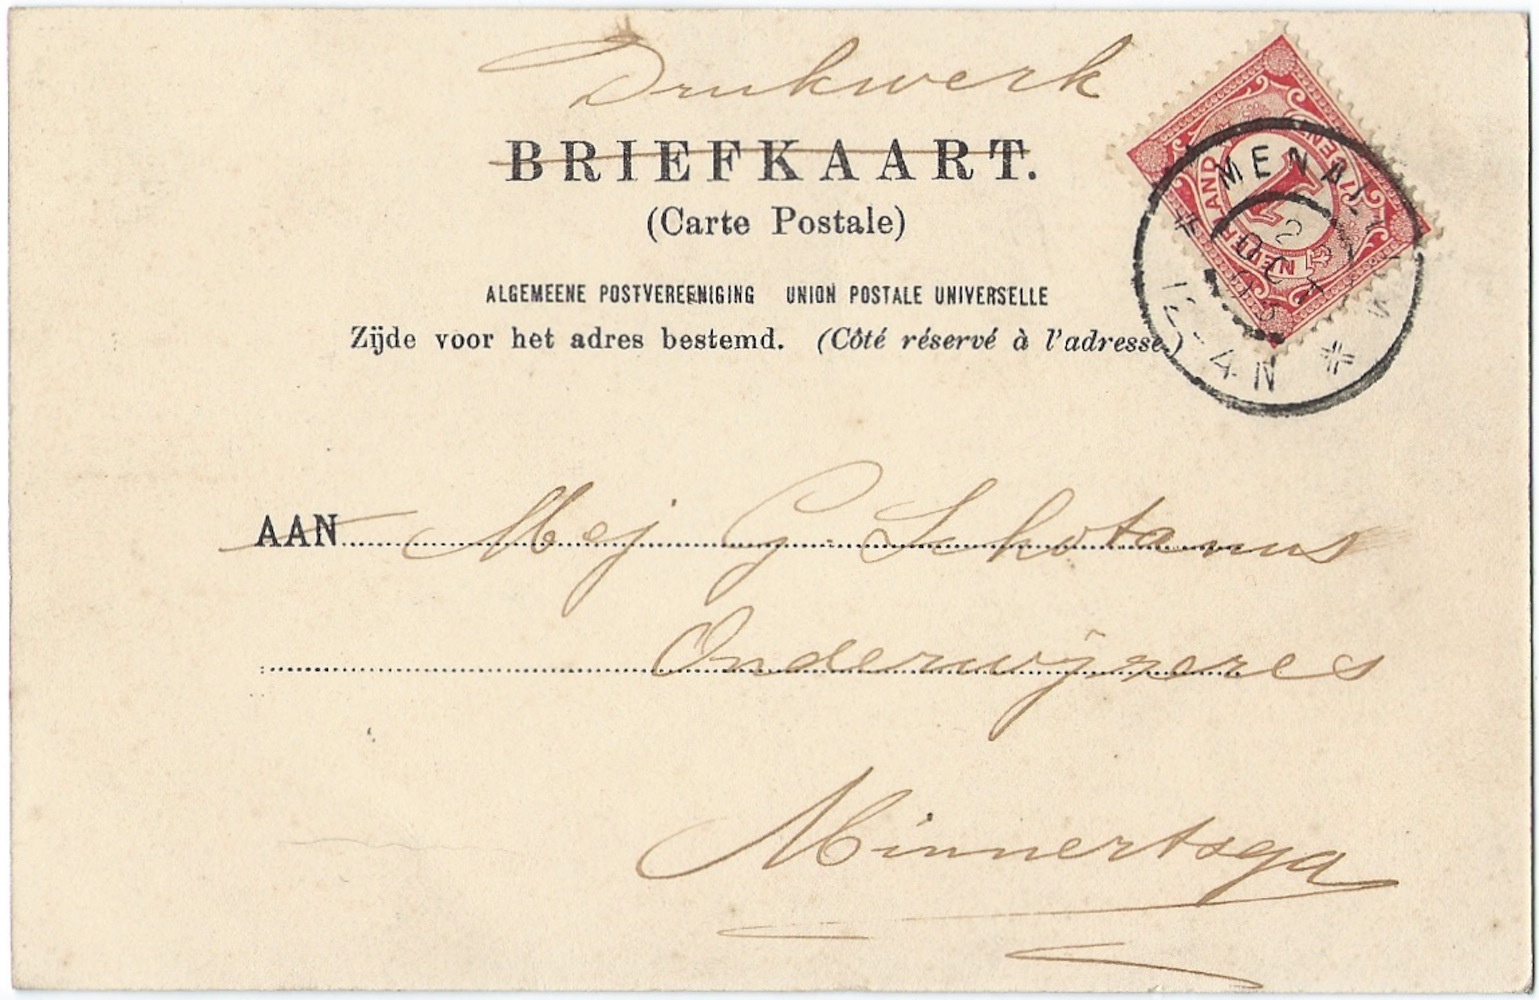 Drukwerk
BRIEFKAART.
(Carte Postale)
ALGEMEENE POSTVEREENIGING UNION POSTALE UNIVERSELLE
Zijde voor het adres bestemd. (Côté réservé à l'adresse.)
1
2
OCT
12-4N
AAN Mej G. Schotanus
Onderwijzeres
Minnertsga